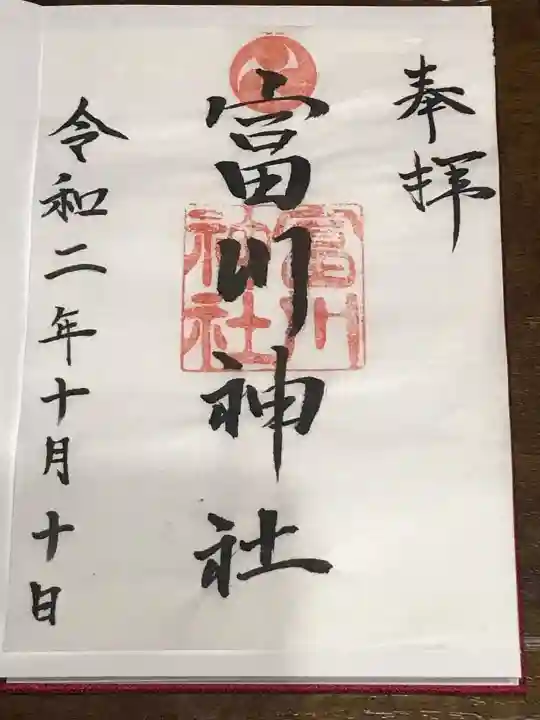 奉拝
富川神社
富川
神社
令和二年十月十日